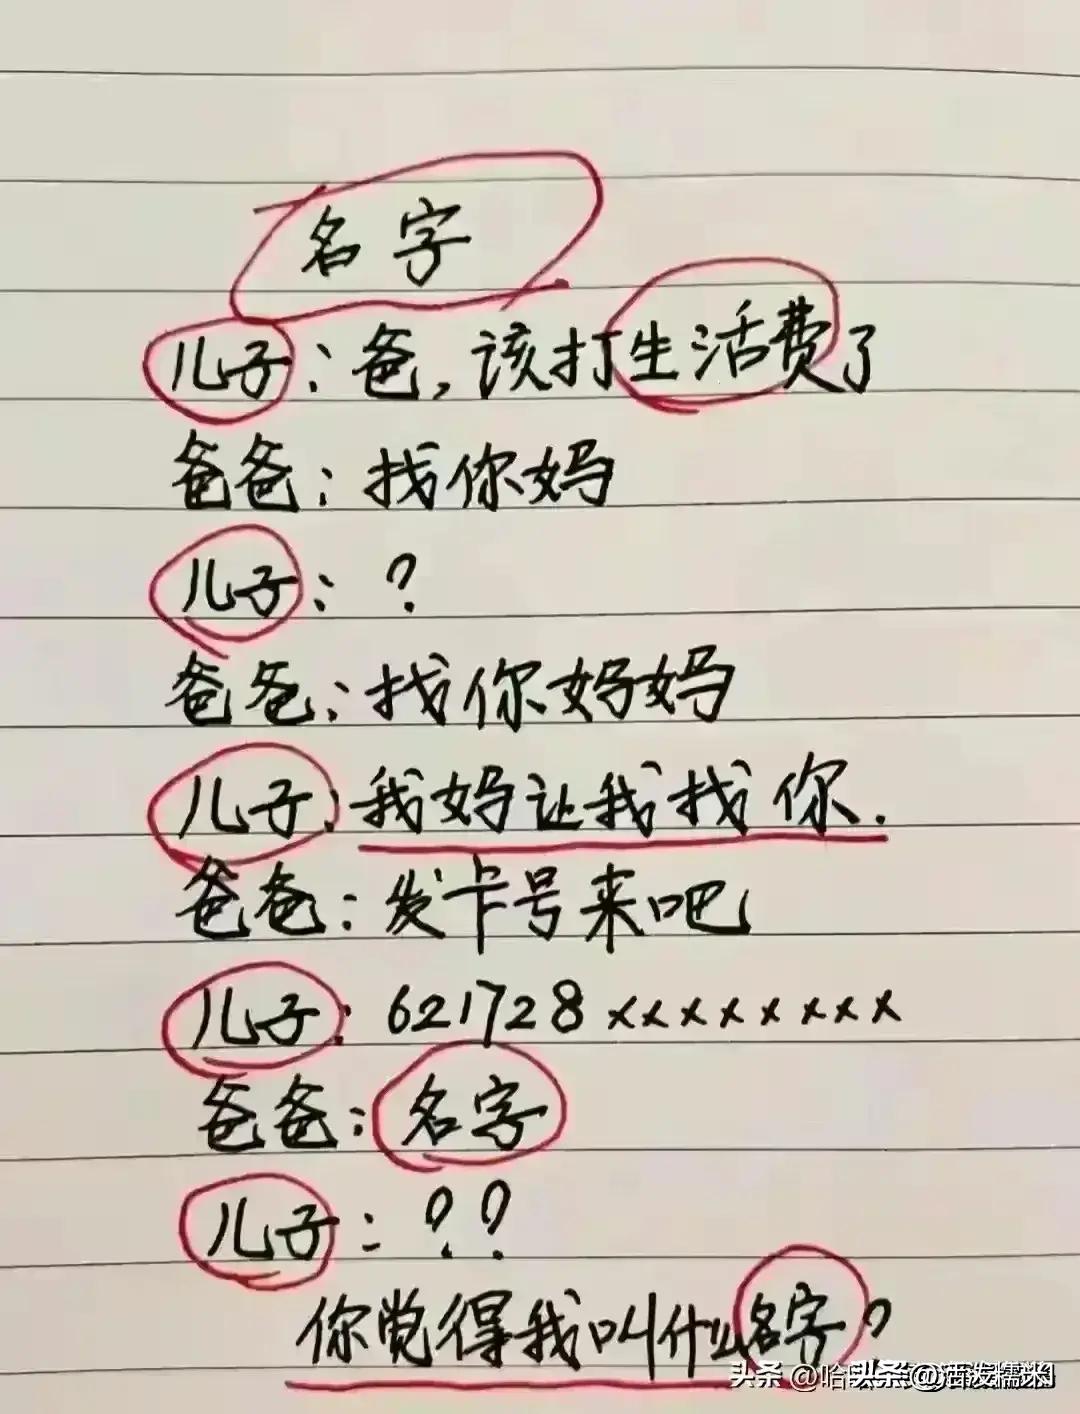 名字
儿子：爸，该打生活费了
爸爸：找你妈
儿子：？
爸爸：找你妈妈
儿子：我妈让我找你.
爸爸：发卡号来吧
儿子：621728××××××××
爸爸：名字
儿子：？？
你觉得我叫什么名字？
头条 @
头条 @酒发糯米